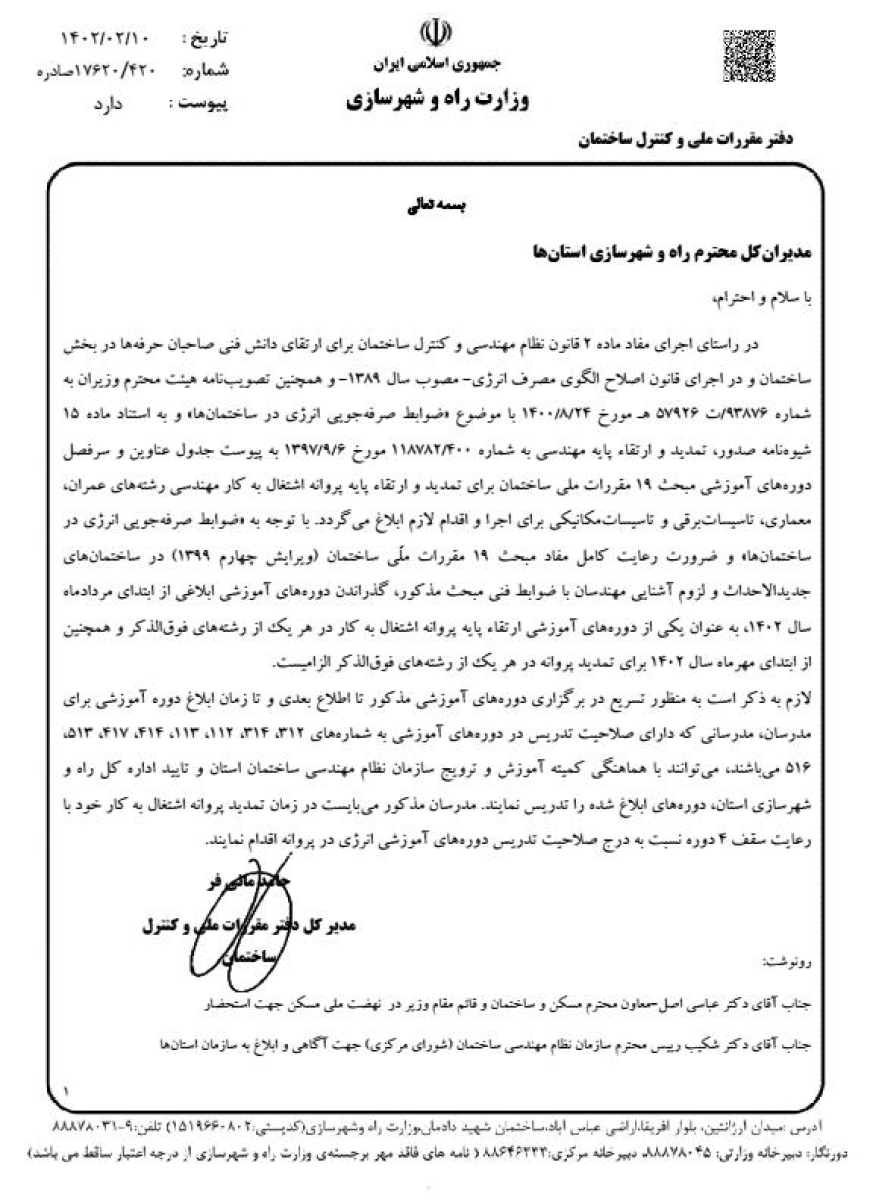 جمهوری اسلامی ایران
وزارت راه و شهرسازی
تاریخ : ۱۴۰۲/۰۲/۱۰
شماره: ۱۷۶۲۰/۴۲۰صادره
پیوست : دارد
دفتر مقررات ملی و کنترل ساختمان
بسمه تعالی
مدیران‌کل محترم راه و شهرسازی استان‌ها
با سلام و احترام،
در راستای اجرای مفاد ماده ۲ قانون نظام مهندسی و کنترل ساختمان برای ارتقای دانش فنی صاحبان حرفه‌ها در بخش
ساختمان و در اجرای قانون اصلاح الگوی مصرف انرژی- مصوب سال ۱۳۸۹- و همچنین تصویب‌نامه هیئت محترم وزیران به
شماره ۹۳۸۷۶/ت ۵۷۹۲۶ هـ مورخ ۱۴۰۰/۸/۲۴ با موضوع «ضوابط صرفه‌جویی انرژی در ساختمان‌ها» و به استناد ماده ۱۵
شیوه‌نامه صدور، تمدید و ارتقاء پایه مهندسی به شماره ۱۱۸۷۸۲/۴۰۰ مورخ ۱۳۹۷/۹/۶ به پیوست جدول عناوین و سرفصل
دوره‌های آموزشی مبحث ۱۹ مقررات ملی ساختمان برای تمدید و ارتقاء پایه پروانه اشتغال به کار مهندسی رشته‌های عمران،
معماری، تاسیسات‌برقی و تاسیسات‌مکانیکی برای اجرا و اقدام لازم ابلاغ می‌گردد. با توجه به «ضوابط صرفه‌جویی انرژی در
ساختمان‌ها» و ضرورت رعایت کامل مفاد مبحث ۱۹ مقررات ملّی ساختمان (ویرایش چهارم ۱۳۹۹) در ساختمان‌های
جدیدالاحداث و لزوم آشنایی مهندسان با ضوابط فنی مبحث مذکور، گذراندن دوره‌های آموزشی ابلاغی از ابتدای مردادماه
سال ۱۴۰۲، به عنوان یکی از دوره‌های آموزشی ارتقاء پایه پروانه اشتغال به کار در هر یک از رشته‌های فوق‌الذکر و همچنین
از ابتدای مهرماه سال ۱۴۰۲ برای تمدید پروانه در هر یک از رشته‌های فوق‌الذکر الزامیست.
لازم به ذکر است به منظور تسریع در برگزاری دوره‌های آموزشی مذکور تا اطلاع بعدی و تا زمان ابلاغ دوره آموزشی برای
مدرسان، مدرسانی که دارای صلاحیت تدریس در دوره‌های آموزشی به شماره‌های ۳۱۲، ۳۱۴، ۱۱۲، ۱۱۳، ۴۱۴، ۴۱۷، ۵۱۳،
۵۱۶ می‌باشند، می‌توانند با هماهنگی کمیته آموزش و ترویج سازمان نظام مهندسی ساختمان استان و تایید اداره کل راه و
شهرسازی استان، دوره‌های ابلاغ شده را تدریس نمایند. مدرسان مذکور می‌بایست در زمان تمدید پروانه اشتغال به کار خود با
رعایت سقف ۴ دوره نسبت به درج صلاحیت تدریس دوره‌های آموزشی انرژی در پروانه اقدام نمایند.
حامد مانی فر
مدیر کل دفتر مقررات ملی و کنترل
ساختمان
رونوشت:
جناب آقای دکتر عباسی اصل-معاون محترم مسکن و ساختمان و قائم مقام وزیر در نهضت ملی مسکن جهت استحضار
جناب آقای دکتر شکیب رییس محترم سازمان نظام مهندسی ساختمان (شورای مرکزی) جهت آگاهی و ابلاغ به سازمان استان‌ها
۱
آدرس :میدان آرژانتین، بلوار آفریقا،اراضی عباس آباد،ساختمان شهید دادمان،وزارت راه وشهرسازی(کدپستی:۱۵۱۹۶۶۰۸۰۲) تلفن:۹-۸۸۸۷۸۰۳۱
دورنگار: دبیرخانه وزارتی: ۸۸۸۷۸۰۴۵، دبیرخانه مرکزی:۸۸۶۴۶۲۳۳ ( نامه های فاقد مهر برجسته‌ی وزارت راه و شهرسازی از درجه اعتبار ساقط می باشد)